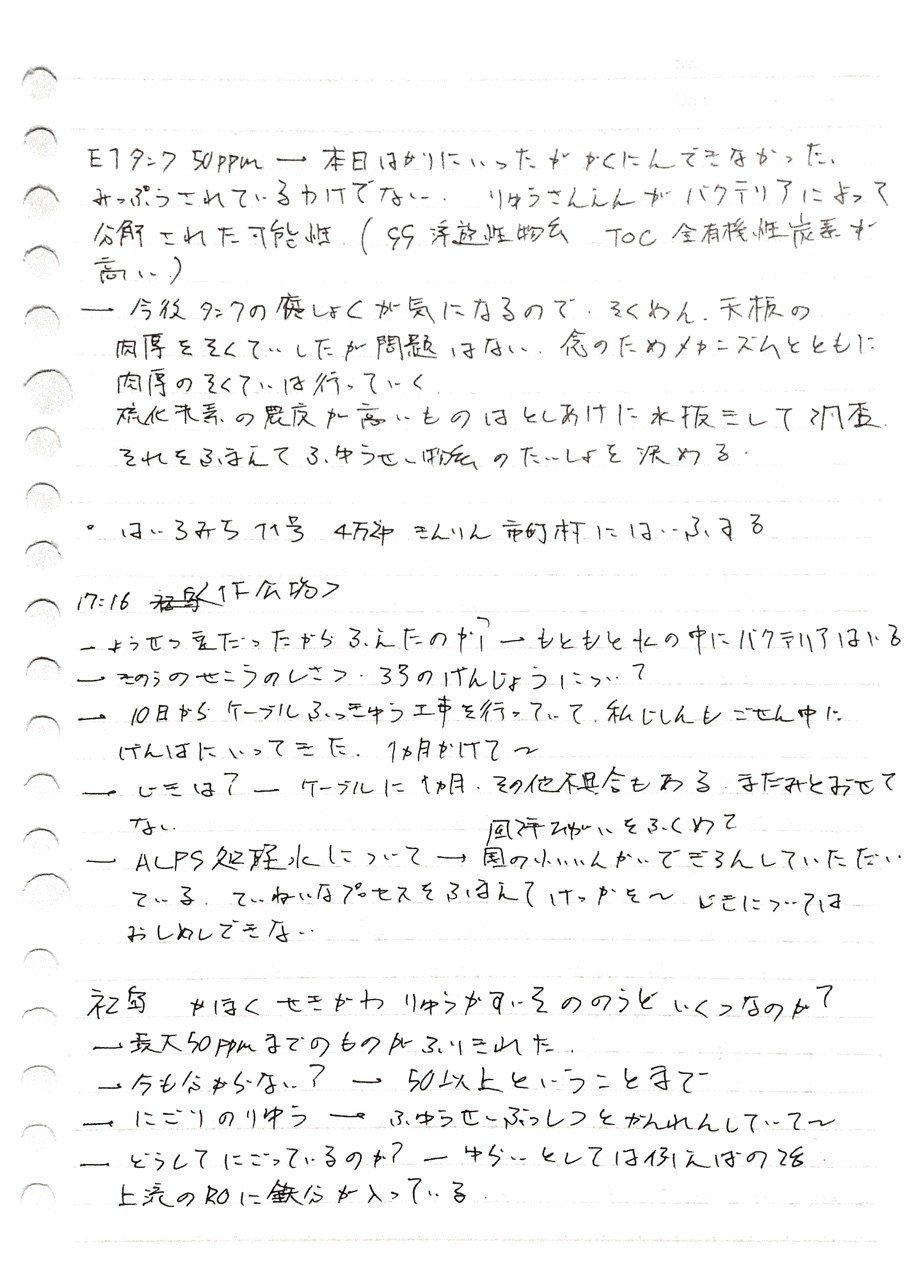 E7タンク 50ppm → 本日はかりにいったがかくにんできなかった、
みっぷうされているわけでない. りゅうさんえんがバクテリアによって
分解された可能性. (SS 浮遊性物質 TOC 全有機性炭素が
高い.)
→ 今後タンクの腐しょくが気になるので. そくめん. 天板の
肉厚をそくていしたが問題はない. 念のためメカニズムとともに
肉厚のそくていは行っていく
硫化水素の農度が高いものはとしあけに水抜きして調査.
それをふまえてふゆうせい物質のたいしょを決める.
° はいろみち 11号 4万部 きんりん市町村にはいふする
17:16 〈作広場〉
→ ようせつ型だったからふえたのか? → もともと水の中にバクテリアはいる
→ きのうのせこうのしさつ. 3号のげんじょうについて
→ 10日からケーブルふっきゅう工事を行っていて. 私じしんもごぜん中に
げんばにいってきた. 1ヵ月かけて〜
→ じきは? → ケーブルに1ヵ月. その他不具合もある. まだみとおせて
ない.
風評ひがいをふくめて
→ ALPS処理水について → 国の小いいんかいでぎろんしていただい
ている. ていねいなプロセスをふまえてけっかを〜 じきについては
おしめしできない.
かほく せきがわ りゅうかすいそののうど いくつなのか?
→ 最大50ppmまでのものがふりきれた.
→ 今も分からない? → 50以上ということまで
→ にごりのりゆう → ふゆうせいぶっしつとかんれんしていて〜
→ どうしてにごっているのか? → ゆらいとしては例えばの話.
上流のROに鉄分が入っている.